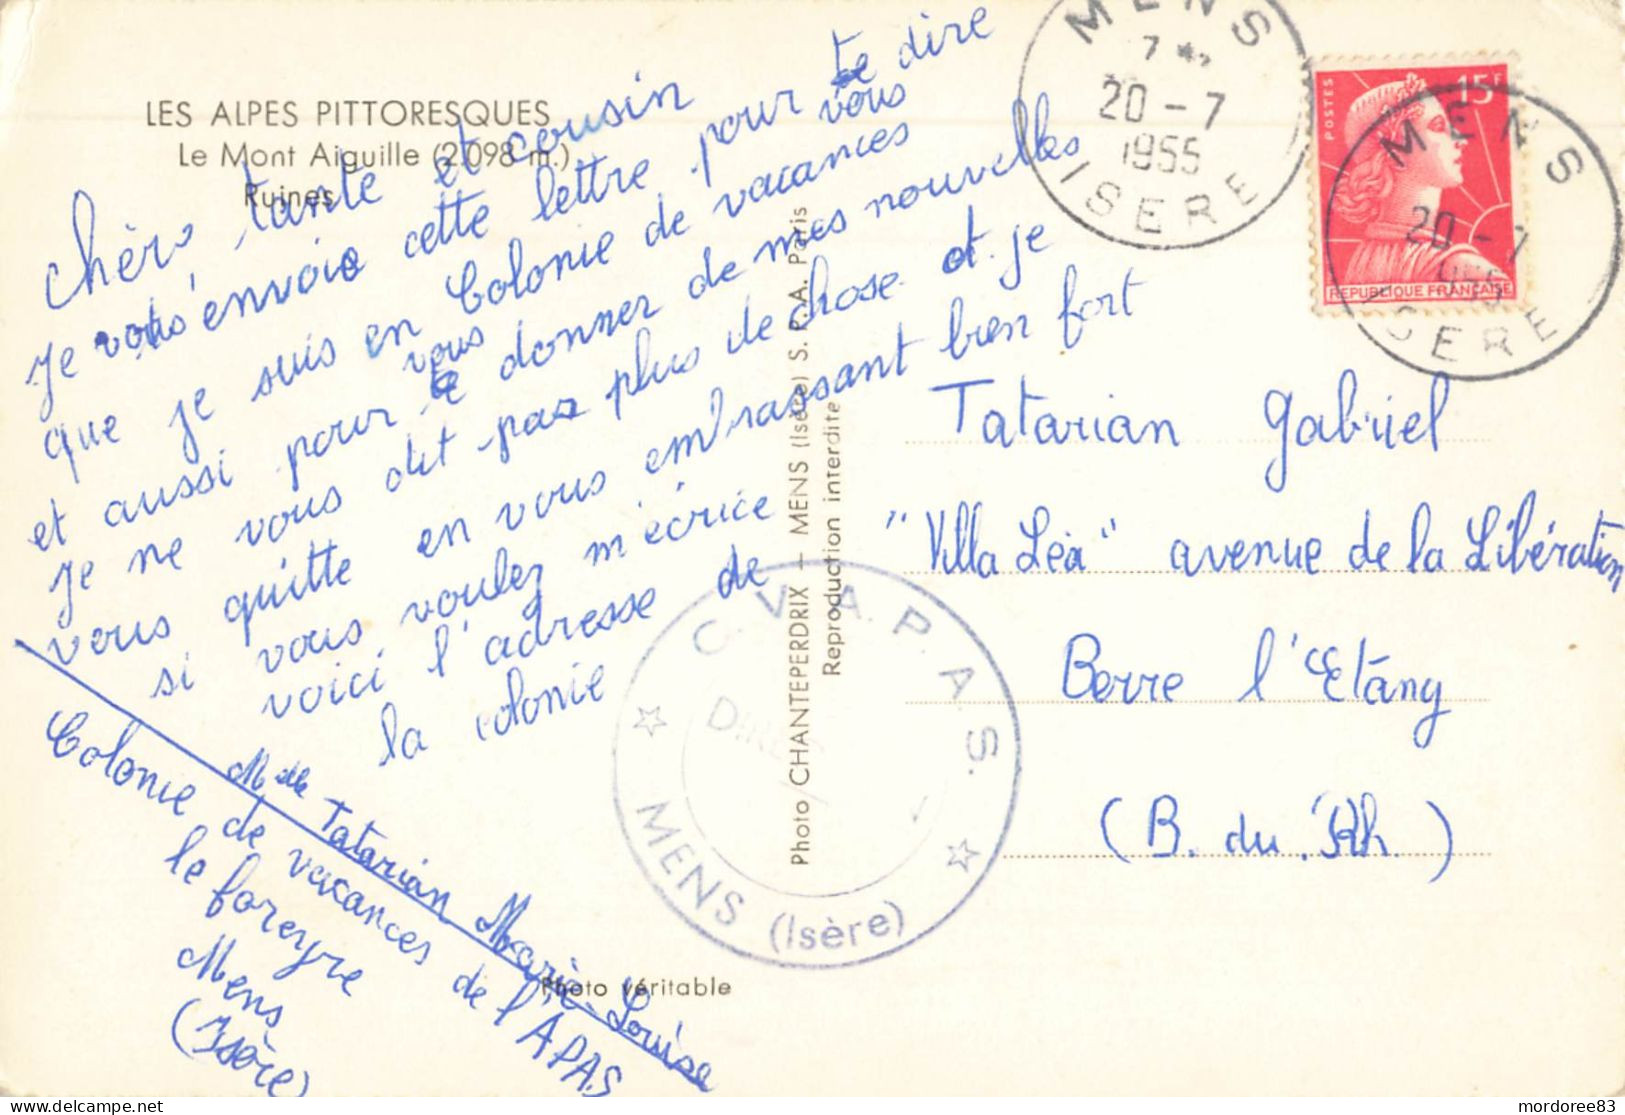 LES ALPES PITTORESQUES
Le Mont Aiguille (2.098 m.)
Ruines
Chère tante et cousin
je vous envoie cette lettre pour te dire
vous
que je suis en Colonie de vacances
vous
et aussi pour donner de mes nouvelles
je ne vous dit pas plus de chose et je
vous quitte en vous embrassant bien fort
si vous voulez m'écrire
voici l'adresse de
la colonie
Melle Tatarian Marie-Louise
Colonie de vacances de l'APAS
le foreyre
Mens
(Isère)
Photo CHANTEPERDRIX - MENS (Isère) S. P. A. Paris
Reproduction interdite
Photo véritable
C.V.A.P.A.S.
MENS (Isère)
MENS
20 - 7
1955
ISERE
POSTES
15F
REPUBLIQUE FRANÇAISE
MENS
20 - 7
1955
ISERE
Tatarian Gabriel
"Villa Léa" avenue de la Libération
Berre l'Etang
(B. du Rh.)
mordoree83